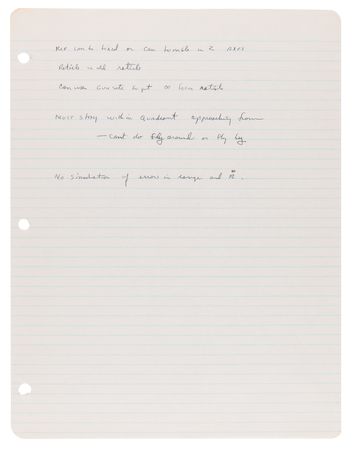 can be fixed or can tumble in 2 axes
Reticle in reticle
Can use cursor to put on reticle
Must stay within Quadrant approaching from
— Cant do fly around or fly by
No simulation of error in range and R.